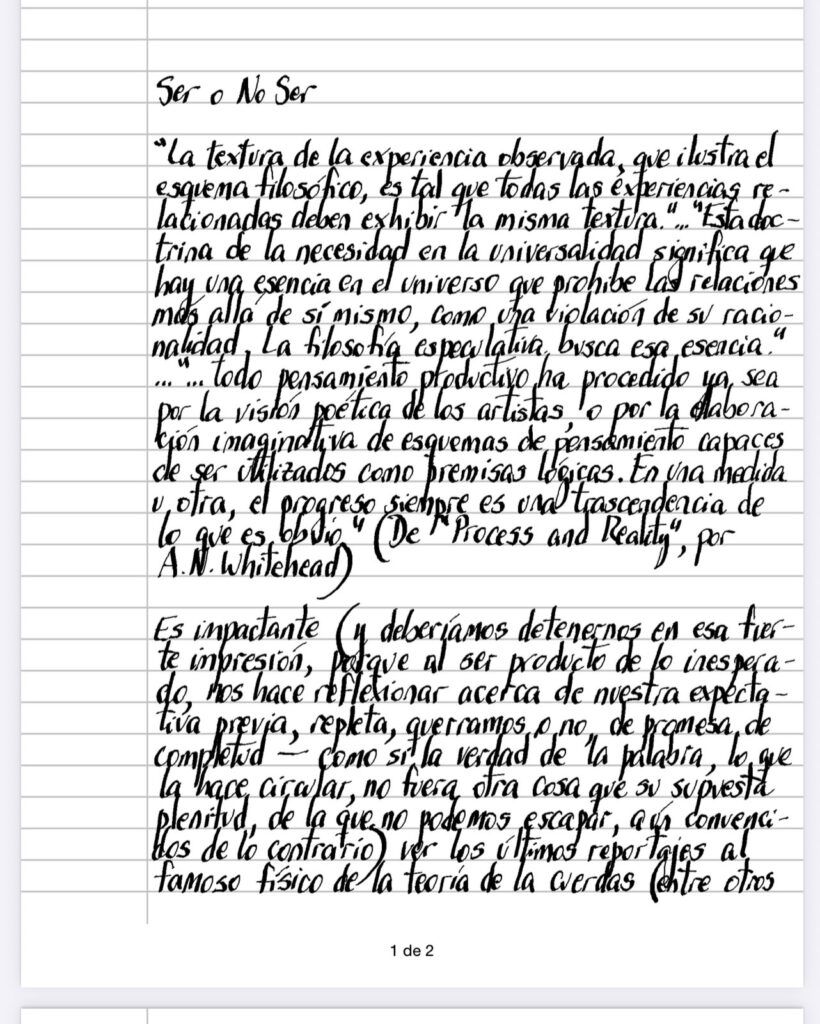 Ser o No Ser
"La textura de la experiencia observada, que ilustra el
esquema filosófico, es tal que todas las experiencias re-
lacionadas deben exhibir la misma textura."... "Esta doc-
trina de la necesidad en la universalidad significa que
hay una esencia en el universo que prohibe las relaciones
más allá de sí mismo, como una violación de su racio-
nalidad. La filosofía especulativa busca esa esencia."
..."... todo pensamiento productivo ha procedido ya sea
por la visión poética de los artistas, o por la elabora-
ción imaginativa de esquemas de pensamiento capaces
de ser utilizados como premisas lógicas. En una medida
u otra, el progreso siempre es una trascendencia de
lo que es obvio" (De "Process and Reality", por
A.N. Whitehead)
Es impactante (y deberíamos detenernos en esa fuer-
te impresión, porque al ser producto de lo inespera-
do, nos hace reflexionar acerca de nuestra expecta-
tiva previa, repleta, querramos o no, de promesa, de
completud — como si la verdad de la palabra, lo que
la hace circular, no fuera otra cosa que su supuesta
plenitud, de la que no podemos escapar, aún convenci-
dos de lo contrario) ver los últimos reportajes al
famoso físico de la teoría de la cuerdas (entre otros
1 de 2